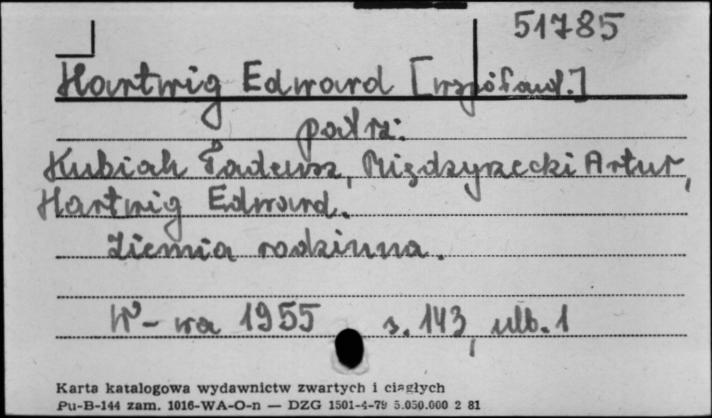 51785
Hartwig Edward [współaut.]
patrz:
Kubiak Tadeusz, Międzyrzecki Artur,
Hartwig Edward.
Ziemia rodzinna.
W-wa 1955 s. 143, ulb. 1
Karta katalogowa wydawnictw zwartych i ciągłych
Pu-B-144 zam. 1016-WA-O-n — DZG 1501-4-79 5.050.000 2 81